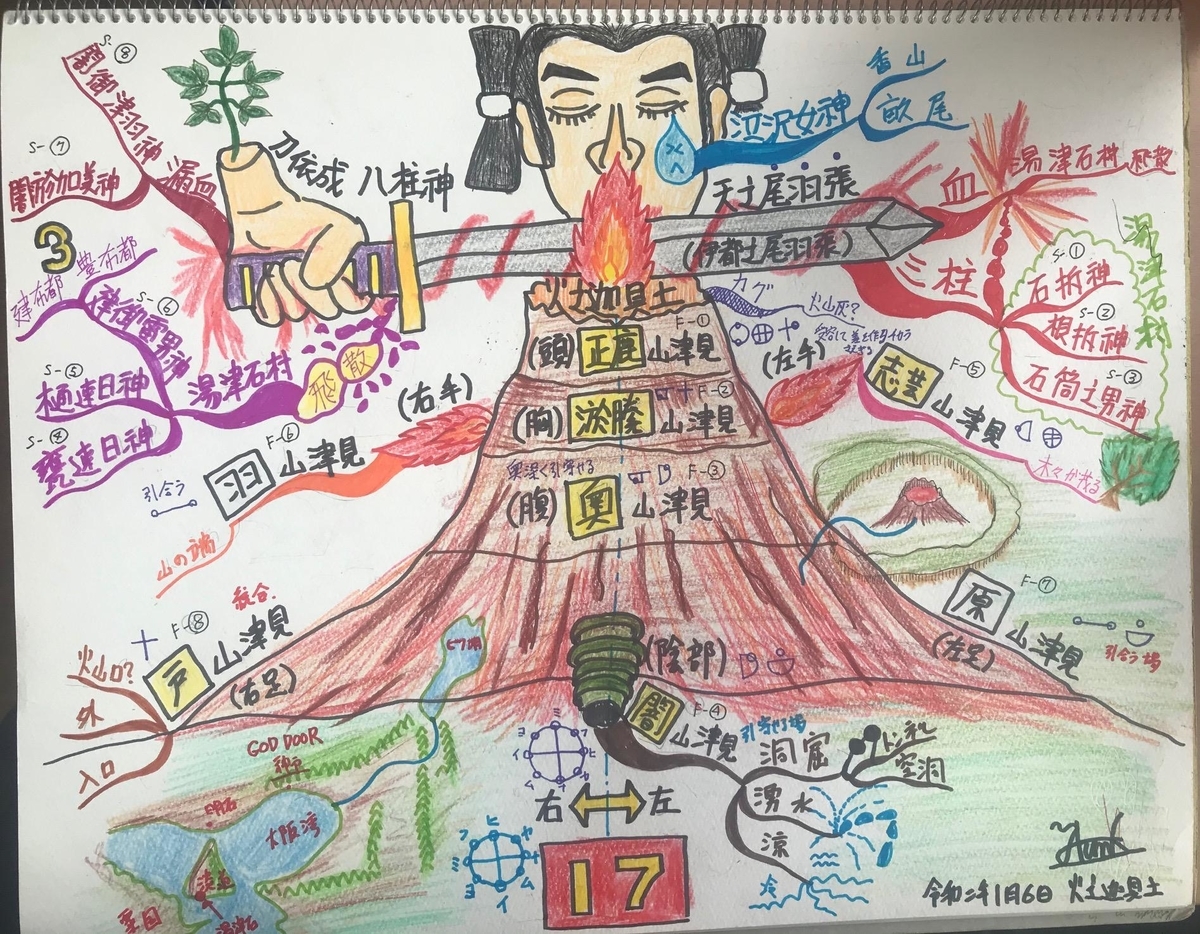 S-⑧
闇御津羽神
漏血
S-⑦
闇淤加美神
3
刀依成 八柱神
泣沢女神
香山
畝尾
天之尾羽張
(伊都之尾羽張)
血
湯津石村
飛散
三柱
湯津石村
S-①
石拆神
S-②
根拆神
S-③
石筒之男神
豊布都
建布都
S-⑥
建御雷男神
S-⑤
樋速日神
S-④
甕速日神
湯津石村
飛散
火之迦具土
カグ
火山灰?
F-①
(頭) 正鹿 山津見
F-②
(胸) 淤縢 山津見
奥深く引寄せる
F-③
(腹) 奥 山津見
(左手)
F-⑤
志芸 山津見
木々が茂る
(右手)
F-⑥
羽 山津見
引合う
山の端
F-⑦
原 山津見
(左足)
引合う場
統合
F-⑧
戸 山津見
(右足)
火山口?
外
入口
(陰部)
F-④
闇 山津見
引寄せる場
洞窟
トンネル
空洞
湧水
涼
冷
ビワ湖
GOD DOOR
神戸
明石
大阪湾
淡道
右 左
17
令和二年1月6日 火之迦具土